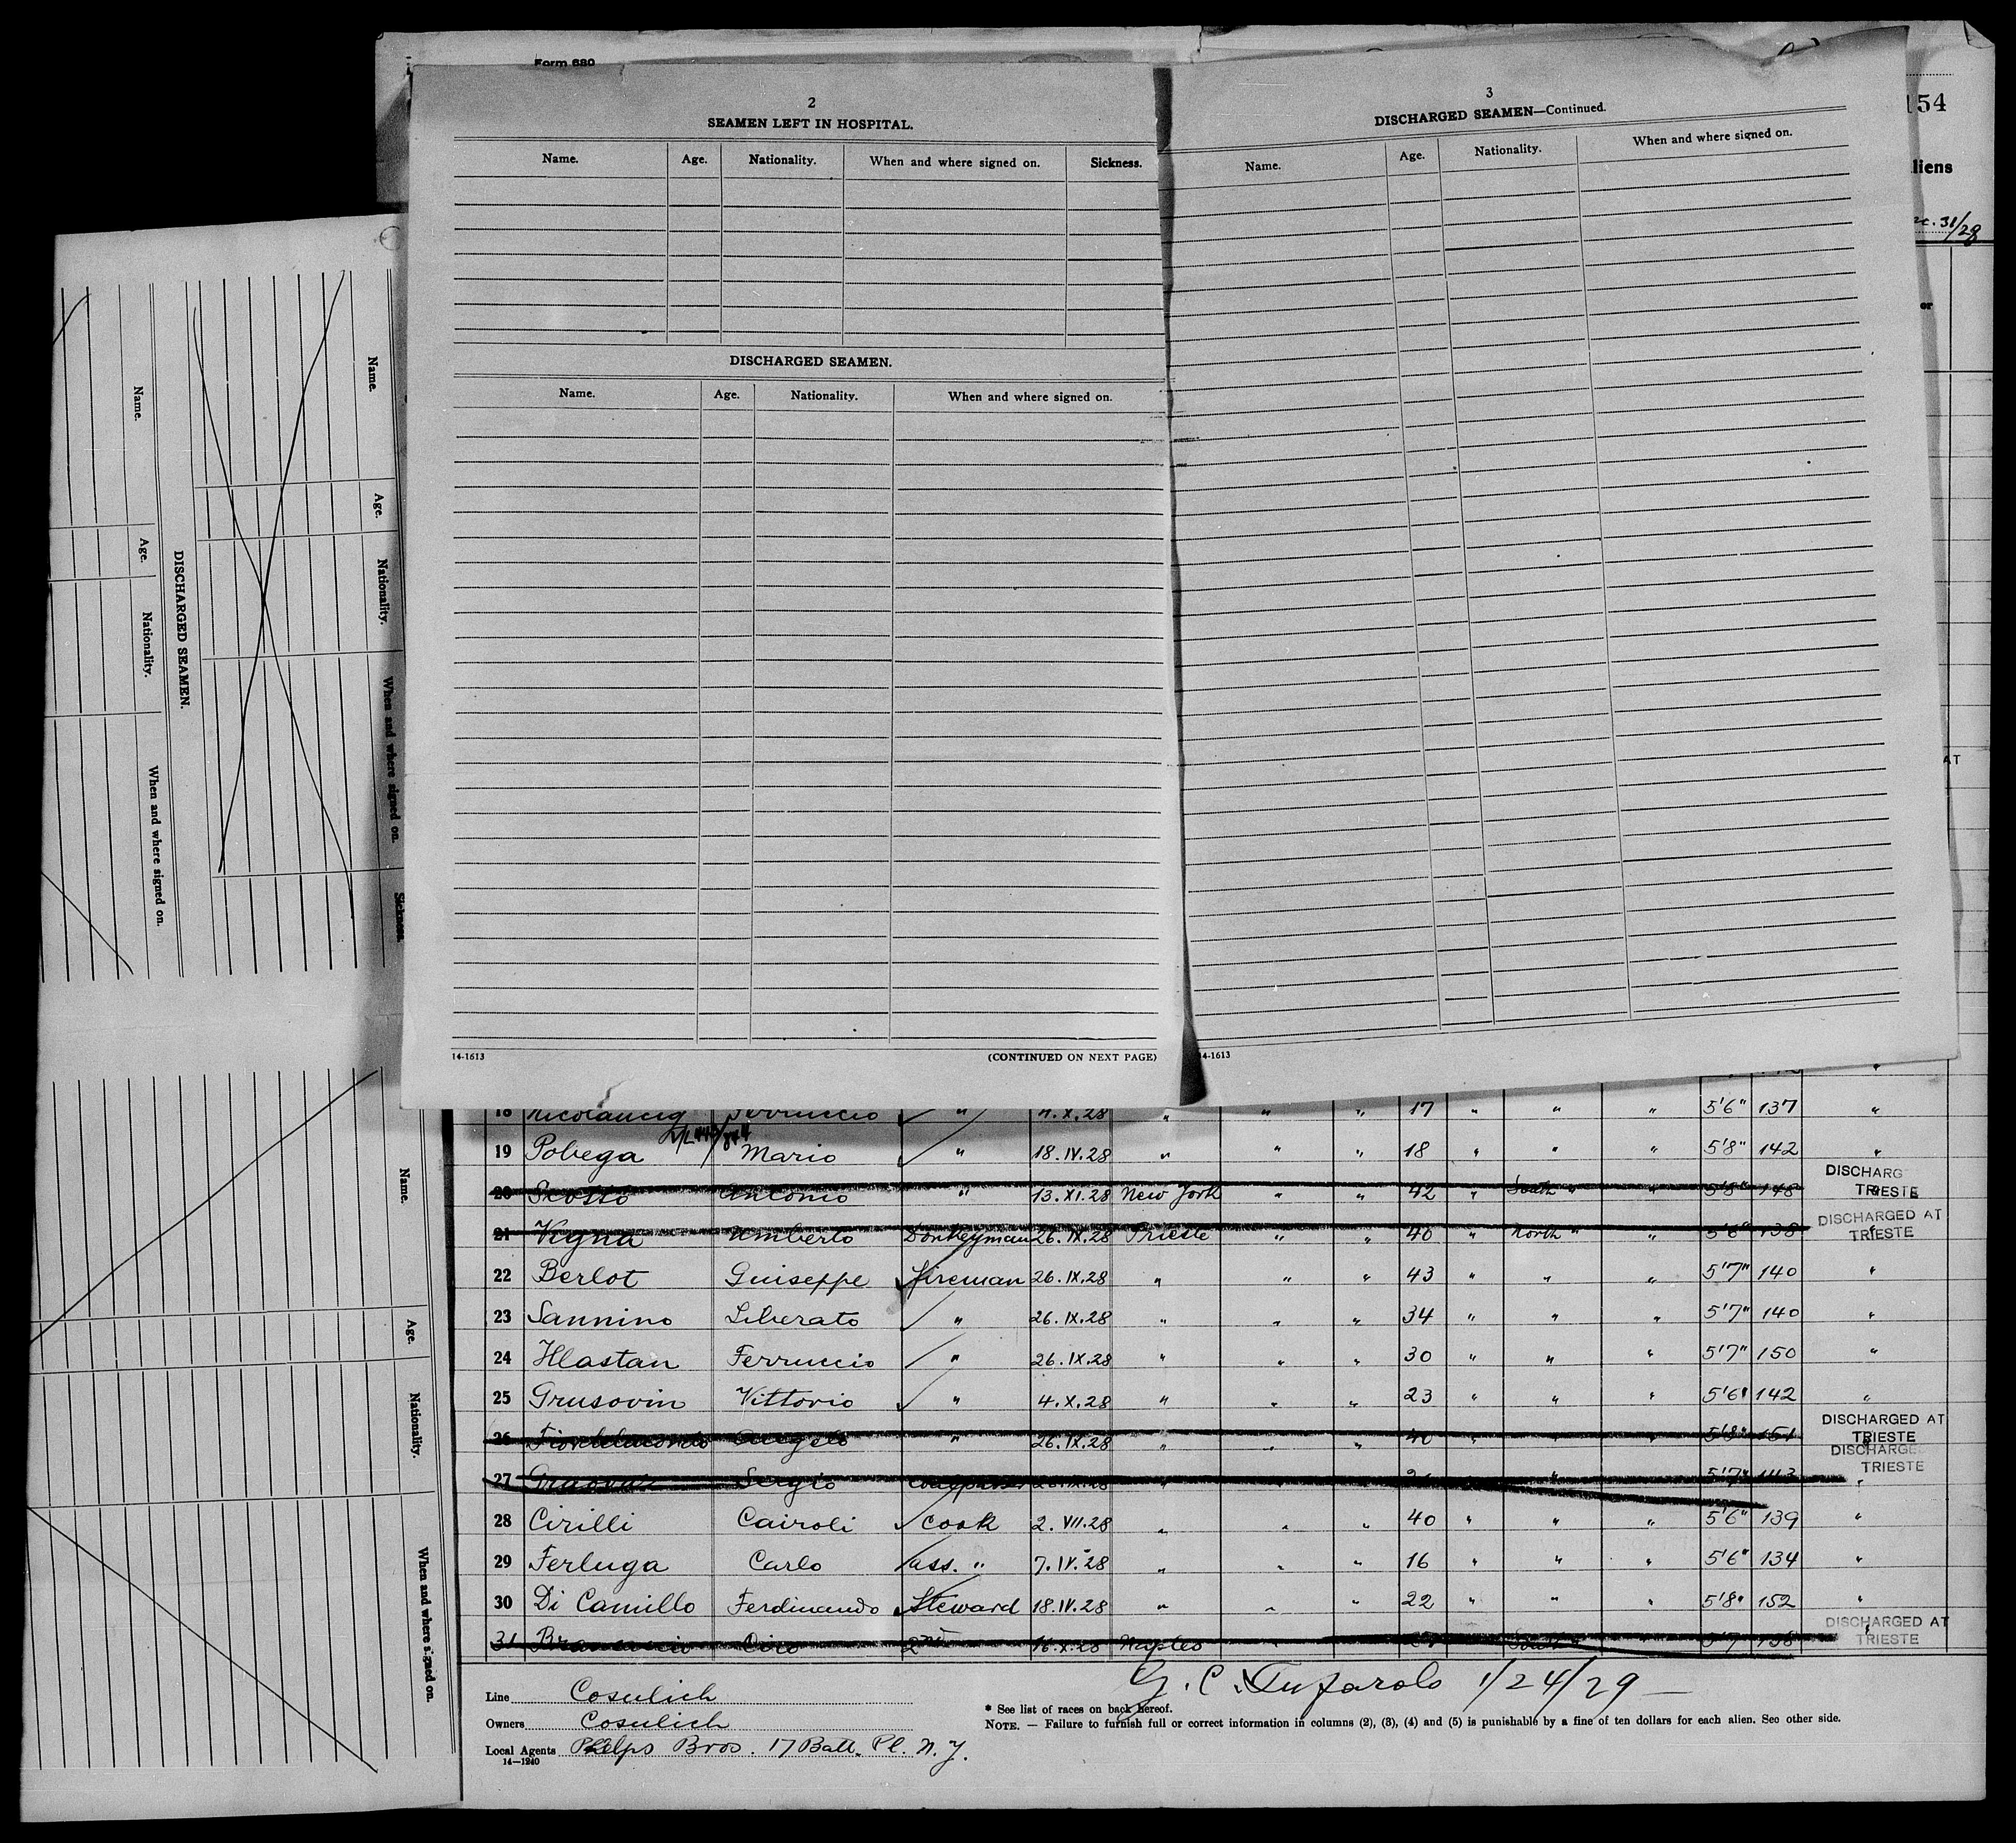 Form 680
2
SEAMEN LEFT IN HOSPITAL.
Name. Age. Nationality. When and where signed on. Sickness.
DISCHARGED SEAMEN.
Name. Age. Nationality. When and where signed on.
14-1613 (CONTINUED ON NEXT PAGE)
3
DISCHARGED SEAMEN—Continued.
Name. Age. Nationality. When and where signed on.
4-1613
154
liens
31/28
or
AT
Name. Age. Nationality. When and where signed on. Sickness.
DISCHARGED SEAMEN.
Name. Age. Nationality. When and where signed on.
Name. Age. Nationality. When and where signed on.
18 Ferruccio " 4.X.28 " " " 17 " " " 5'6" 137 "
19 Pobega Mario " 18.IV.28 " " " 18 " " " 5'8" 142 "
20 Scotto Antonio " 13.XI.28 New York " " 42 " South " " 5'8" 148 "
DISCHARG
TRIESTE
21 Vigna Umberto Donkeyman 26.IX.28 Trieste " " 40 " North " " 5'6" 138 "
DISCHARGED AT
TRIESTE
22 Berlot Guiseppe Fireman 26.IX.28 " " " 43 " " " 5'7" 140 "
23 Sannino Liberato " 26.IX.28 " " " 34 " " " 5'7" 140 "
24 Hlastan Ferruccio " 26.IX.28 " " " 30 " " " 5'7" 150 "
25 Grusovin Vittorio " 4.X.28 " " " 23 " " " 5'6" 142 "
26 Angelo " 26.IX.28 " " " 40 " " " 5'8" 151 "
DISCHARGED AT
TRIESTE
27 Sergio 26.IX.28 " " 5'7" 143 "
DISCHARGE
TRIESTE
28 Cirilli Cairoli Cook 2.VII.28 " " " 40 " " " 5'6" 139 "
29 Ferluga Carlo ass. " 7.IV.28 " " " 16 " " " 5'6" 134 "
30 Di Camillo Ferdinando Steward 18.IV.28 " " " 22 " " " 5'8" 152 "
31 Ciro 2nd 16.X.28 Naples " South " 5'7" 138 "
DISCHARGED AT
TRIESTE
G. C. Tufarolo 1/24/29
Line Cosulich
* See list of races on back hereof.
Owners Cosulich
NOTE. — Failure to furnish full or correct information in columns (2), (3), (4) and (5) is punishable by a fine of ten dollars for each alien. See other side.
Local Agents Phelps Bros. 17 Batt. Pl. N.Y.
14—1240